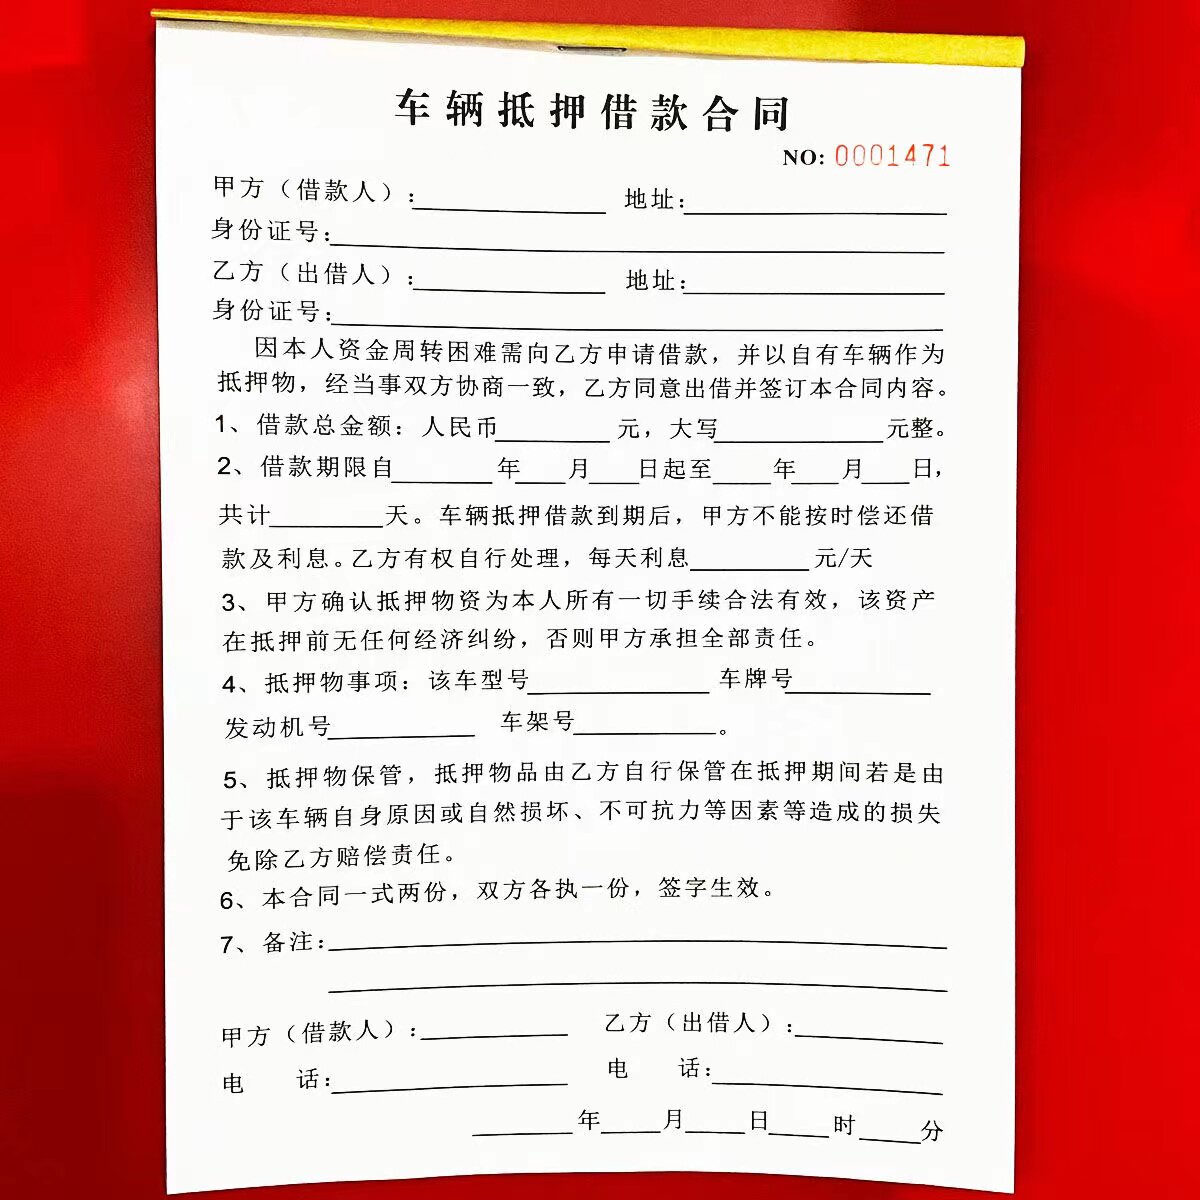 车辆抵押借款合同
NO: 0001471
甲方（借款人）：__________ 地址：__________
身份证号：__________
乙方（出借人）：__________ 地址：__________
身份证号：__________
因本人资金周转困难需向乙方申请借款，并以自有车辆作为
抵押物，经当事双方协商一致，乙方同意出借并签订本合同内容。
1、借款总金额：人民币________元，大写__________元整。
2、借款期限自______年___月___日起至____年___月___日，
共计________天。车辆抵押借款到期后，甲方不能按时偿还借
款及利息。乙方有权自行处理，每天利息________元/天
3、甲方确认抵押物资为本人所有一切手续合法有效，该资产
在抵押前无任何经济纠纷，否则甲方承担全部责任。
4、抵押物事项：该车型号__________车牌号__________
发动机号__________ 车架号__________。
5、抵押物保管，抵押物品由乙方自行保管在抵押期间若是由
于该车辆自身原因或自然损坏、不可抗力等因素等造成的损失
免除乙方赔偿责任。
6、本合同一式两份，双方各执一份，签字生效。
7、备注：__________
甲方（借款人）：__________ 乙方（出借人）：__________
电 话：__________ 电 话：__________
______年____月____日____时____分